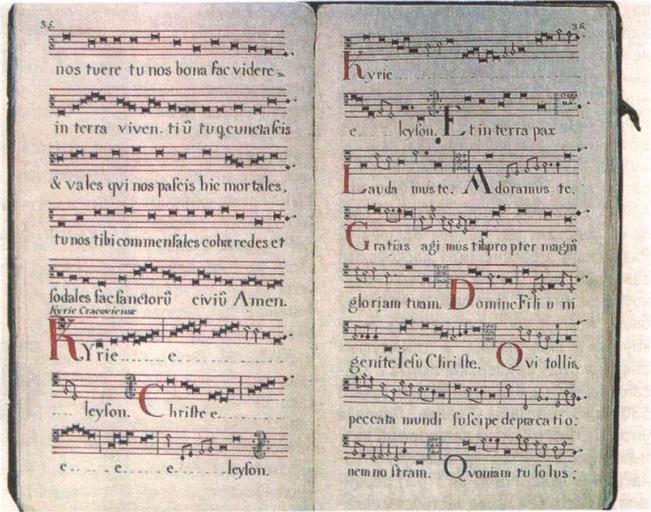 35.
nos tuere tu nos bona fac videre
in terra viven. tiũ tu q, cuncta scis
& vales qvi nos pascis hic mortales.
tu nos tibi commensales cohæredes et
sodales fac sanctorũ civiũ Amen.
Kyrie Cracoviense
Kyrie e
leyson. Christe e
e e e leyson.
36.
Kyrie
e leyson. Et in terra pax
Lauda mus te. Adoramus te.
Gratias agi mus tibi propter magñ
gloriam tuam. Domine Fili u ni
genite Iesu Chri ste. Qvi tollis
peccata mundi suscipe depraecatio:
nem no stram. Qvoniam tu so lus: